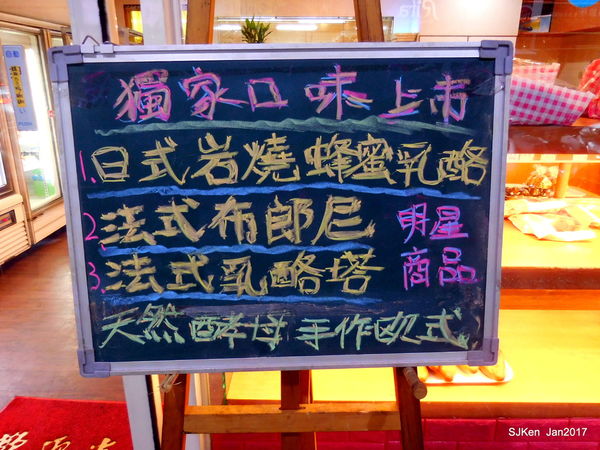 獨家口味上市
1.日式岩燒蜂蜜乳酪
2.法式布郎尼 明星
3.法式乳酪塔 商品
天然酵母手作欧式
SJKen Jan2017